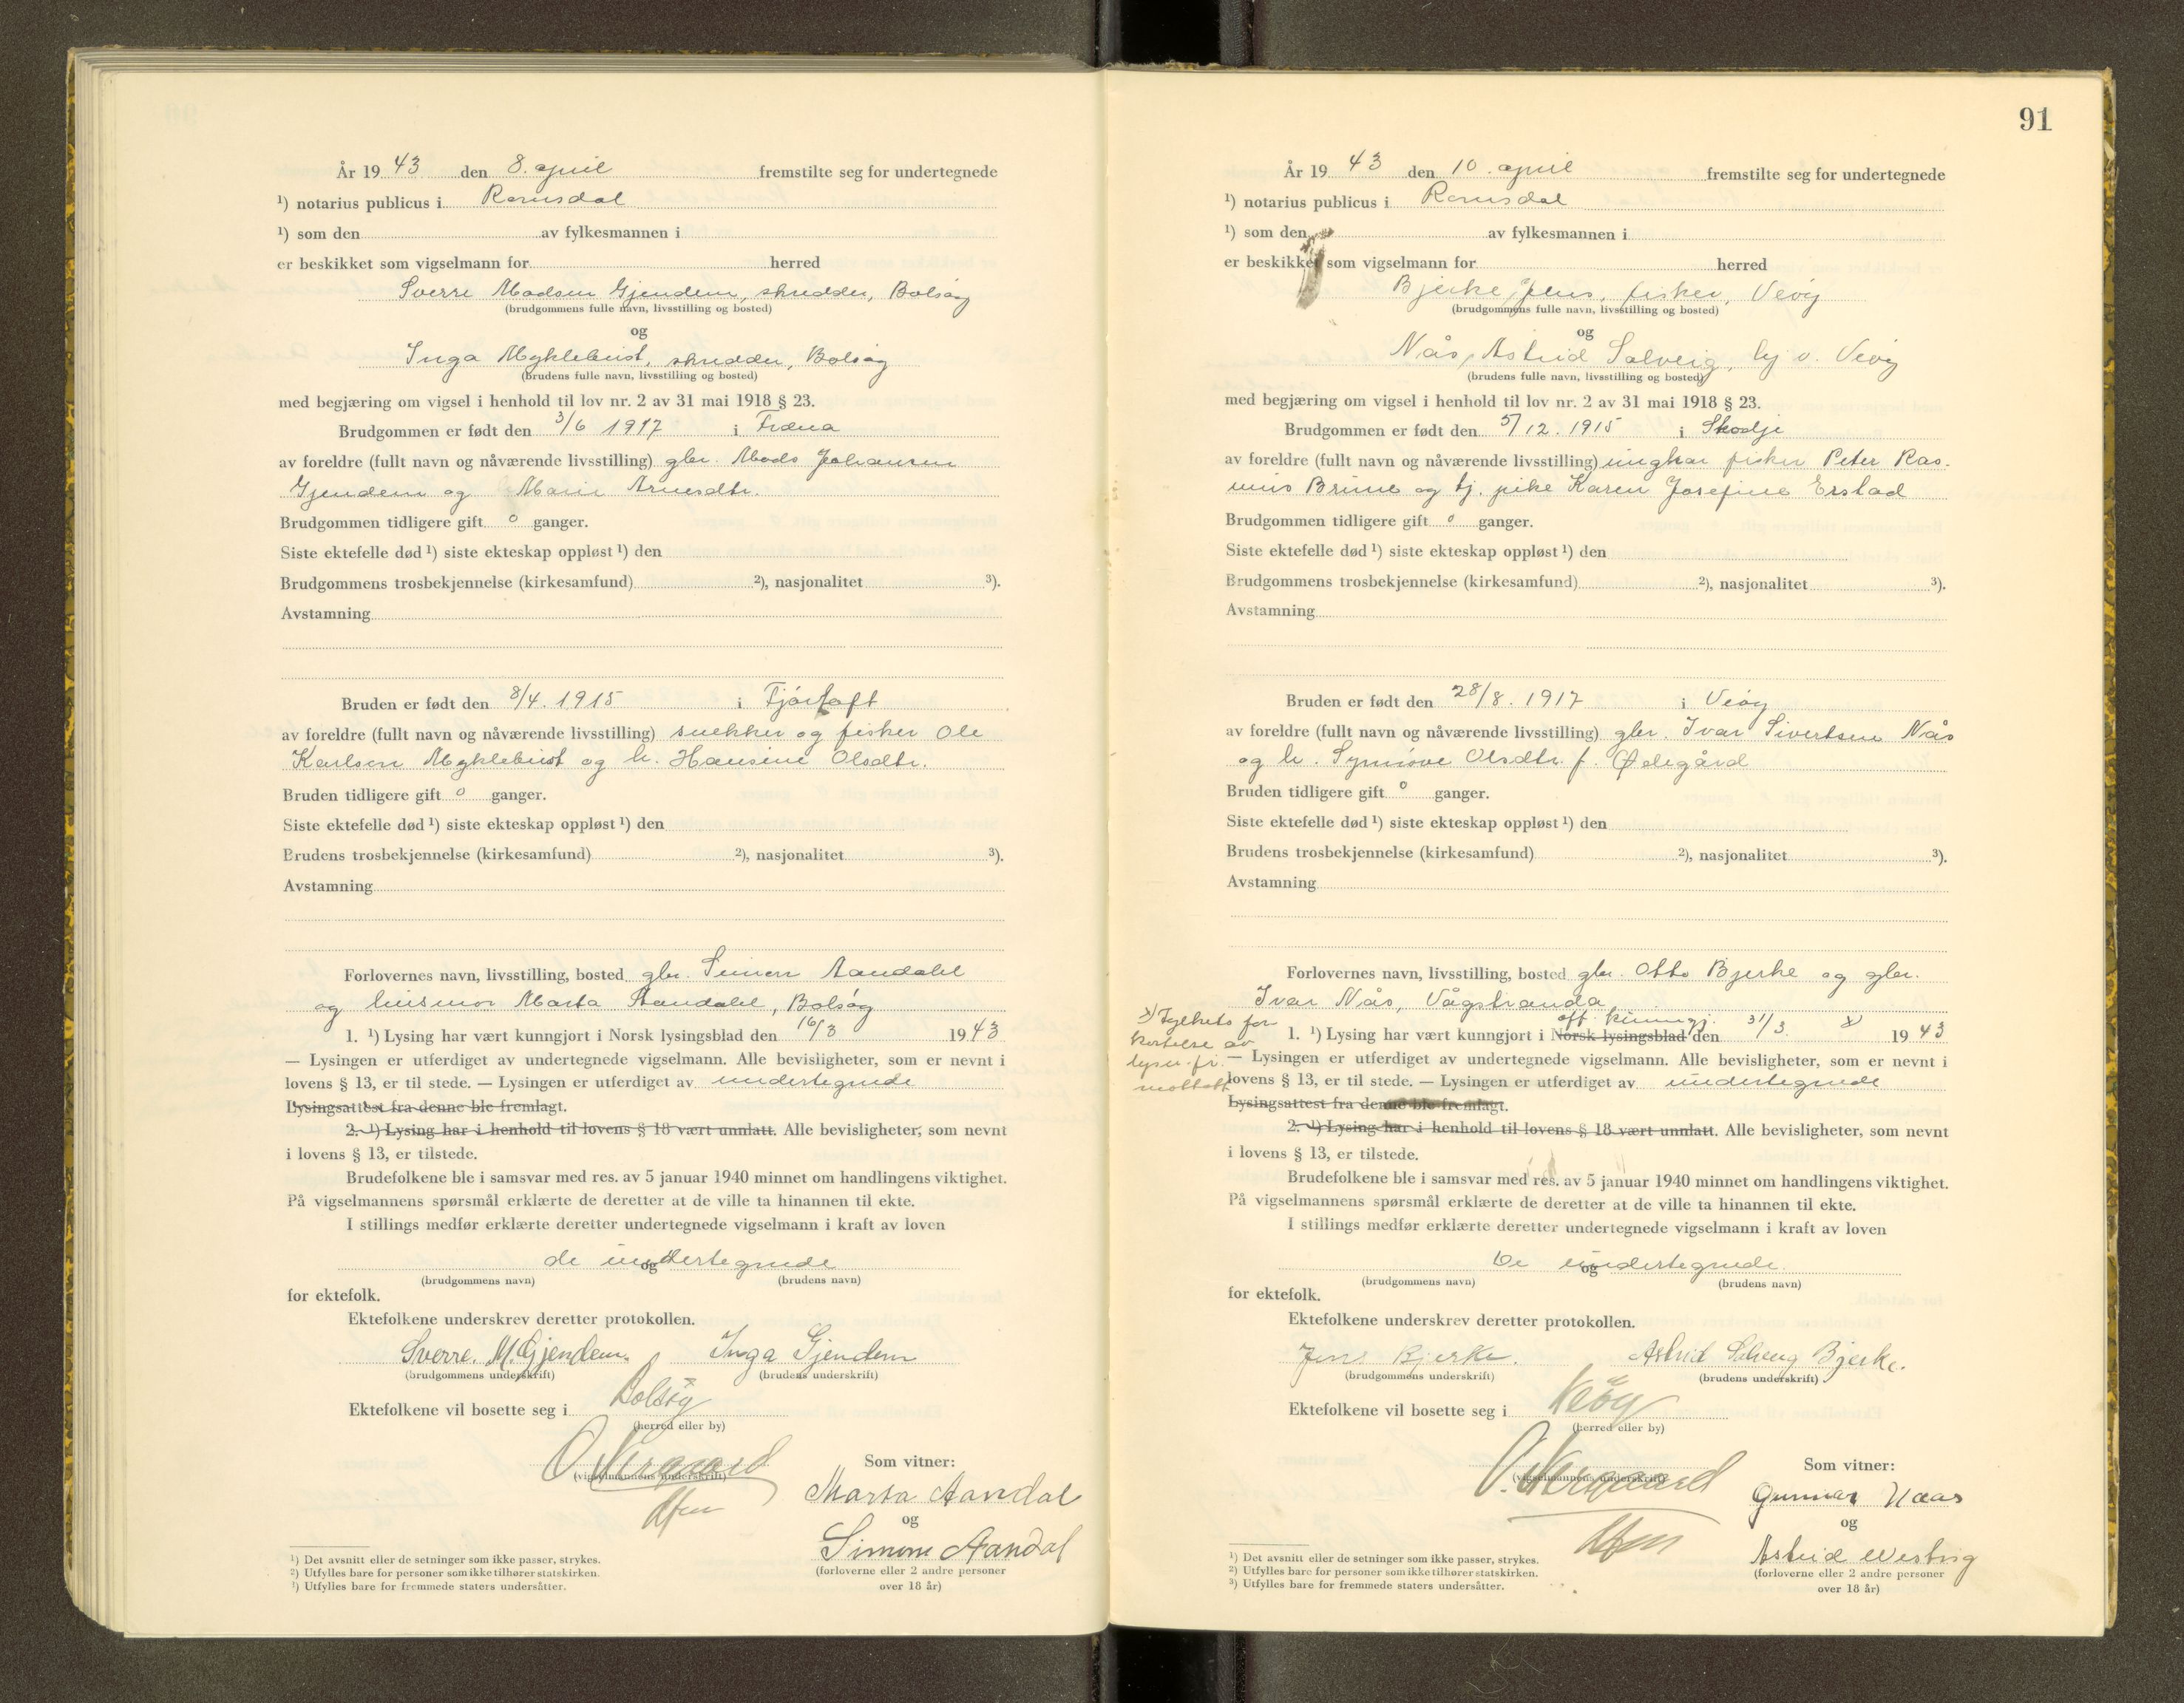 År 19 43 den 8. april fremstilte seg for undertegnede
¹) notarius publicus i Romsdal
¹) som den av fylkesmannen i
er beskikket som vigselmann for herred
Sverre Madsen Gjendem, skredder, Bolsøy
(brudgommens fulle navn, livsstilling og bosted)
og
Inga Myklebust, skredder, Bolsøy
(brudens fulle navn, livsstilling og bosted)
med begjæring om vigsel i henhold til lov nr. 2 av 31 mai 1918 § 23.
Brudgommen er født den 3/6 1917 i Fræna
av foreldre (fullt navn og nåværende livsstilling) gbr. Mads Johansen
Gjendem og Marie Arnesdtr.
Brudgommen tidligere gift 0 ganger.
Siste ektefelle død ¹) siste ekteskap oppløst ¹) den
Brudgommens trosbekjennelse (kirkesamfund) ²), nasjonalitet ³).
Avstamning
Bruden er født den 8/4. 1915 i Fjørtoft
av foreldre (fullt navn og nåværende livsstilling) snekker og fisker Ole
Karlsen Myklebust og h. Hansine Olsdtr.
Bruden tidligere gift 0 ganger.
Siste ektefelle død ¹) siste ekteskap oppløst ¹) den
Brudens trosbekjennelse (kirkesamfund) ²), nasjonalitet ³).
Avstamning
Forlovernes navn, livsstilling, bosted gbr. Simen Aandahl
og husmor Marta Aandahl, Bolsøy
1. ¹) Lysing har vært kunngjort i Norsk lysingsblad den 16/3 19 43
— Lysingen er utferdiget av undertegnede vigselmann. Alle bevisligheter, som er nevnt i
lovens § 13, er til stede. — Lysingen er utferdiget av undertegnede
Lysingsattest fra denne ble fremlagt.
2. ¹) Lysing har i henhold til lovens § 18 vært unnlatt. Alle bevisligheter, som nevnt
i lovens § 13, er tilstede.
Brudefolkene ble i samsvar med res. av 5 januar 1940 minnet om handlingens viktighet.
På vigselmannens spørsmål erklærte de deretter at de ville ta hinannen til ekte.
I stillings medfør erklærte deretter undertegnede vigselmann i kraft av loven
de undertegnede
og
(brudgommens navn) (brudens navn)
for ektefolk.
Ektefolkene underskrev deretter protokollen.
Sverre. M. Gjendem. Inga Gjendem
(brudgommens underskrift) (brudens underskrift)
Ektefolkene vil bosette seg i Bolsøy
(herred eller by)
(vigselmannens underskrift)
Som vitner:
Marta Aandal
og
Simen Aandal
(forloverne eller 2 andre personer
over 18 år)
¹) Det avsnitt eller de setninger som ikke passer, strykes.
²) Utfylles bare for personer som ikke tilhører statskirken.
³) Utfylles bare for fremmede staters undersåtter.
91
År 19 43 den 10. april fremstilte seg for undertegnede
¹) notarius publicus i Romsdal
¹) som den av fylkesmannen i
er beskikket som vigselmann for herred
Bjerke, Jens, fisker, Veøy
(brudgommens fulle navn, livsstilling og bosted)
og
Nås, Astrid Solveig, hj v. Veøy
(brudens fulle navn, livsstilling og bosted)
med begjæring om vigsel i henhold til lov nr. 2 av 31 mai 1918 § 23.
Brudgommen er født den 5/12. 1915 i Skodje
av foreldre (fullt navn og nåværende livsstilling) ungkar fisker Peter Ras-
mus Brune og tj. pike Karen Josefine Erstad
Brudgommen tidligere gift 0 ganger.
Siste ektefelle død ¹) siste ekteskap oppløst ¹) den
Brudgommens trosbekjennelse (kirkesamfund) ²), nasjonalitet ³).
Avstamning
Bruden er født den 28/8. 1917 i Veøy
av foreldre (fullt navn og nåværende livsstilling) gbr. Ivar Sivertsen Nås
og h. Synnøve Olsdtr. f. Ødegård
Bruden tidligere gift 0 ganger.
Siste ektefelle død ¹) siste ekteskap oppløst ¹) den
Brudens trosbekjennelse (kirkesamfund) ²), nasjonalitet ³).
Avstamning
Forlovernes navn, livsstilling, bosted gbr. Otto Bjerke og gbr.
Ivar Nås, Vågstranda
x) Fylkets for
kortelse av
lysn. fr.
mottatt
off. kunngj.
1. ¹) Lysing har vært kunngjort i Norsk lysingsblad den 31/3. x) 19 43
— Lysingen er utferdiget av undertegnede vigselmann. Alle bevisligheter, som er nevnt i
lovens § 13, er til stede. — Lysingen er utferdiget av undertegnede
Lysingsattest fra denne ble fremlagt.
2. ¹) Lysing har i henhold til lovens § 18 vært unnlatt. Alle bevisligheter, som nevnt
i lovens § 13, er tilstede.
Brudefolkene ble i samsvar med res. av 5 januar 1940 minnet om handlingens viktighet.
På vigselmannens spørsmål erklærte de deretter at de ville ta hinannen til ekte.
I stillings medfør erklærte deretter undertegnede vigselmann i kraft av loven
De undertegnede
og
(brudgommens navn) (brudens navn)
for ektefolk.
Ektefolkene underskrev deretter protokollen.
Jens Bjerke. Astrid Solveig Bjerke.
(brudgommens underskrift) (brudens underskrift)
Ektefolkene vil bosette seg i Veøy
(herred eller by)
(vigselmannens underskrift)
Som vitner:
Gunnar Naas
og
Astrid
(forloverne eller 2 andre personer
over 18 år)
¹) Det avsnitt eller de setninger som ikke passer, strykes.
²) Utfylles bare for personer som ikke tilhører statskirken.
³) Utfylles bare for fremmede staters undersåtter.